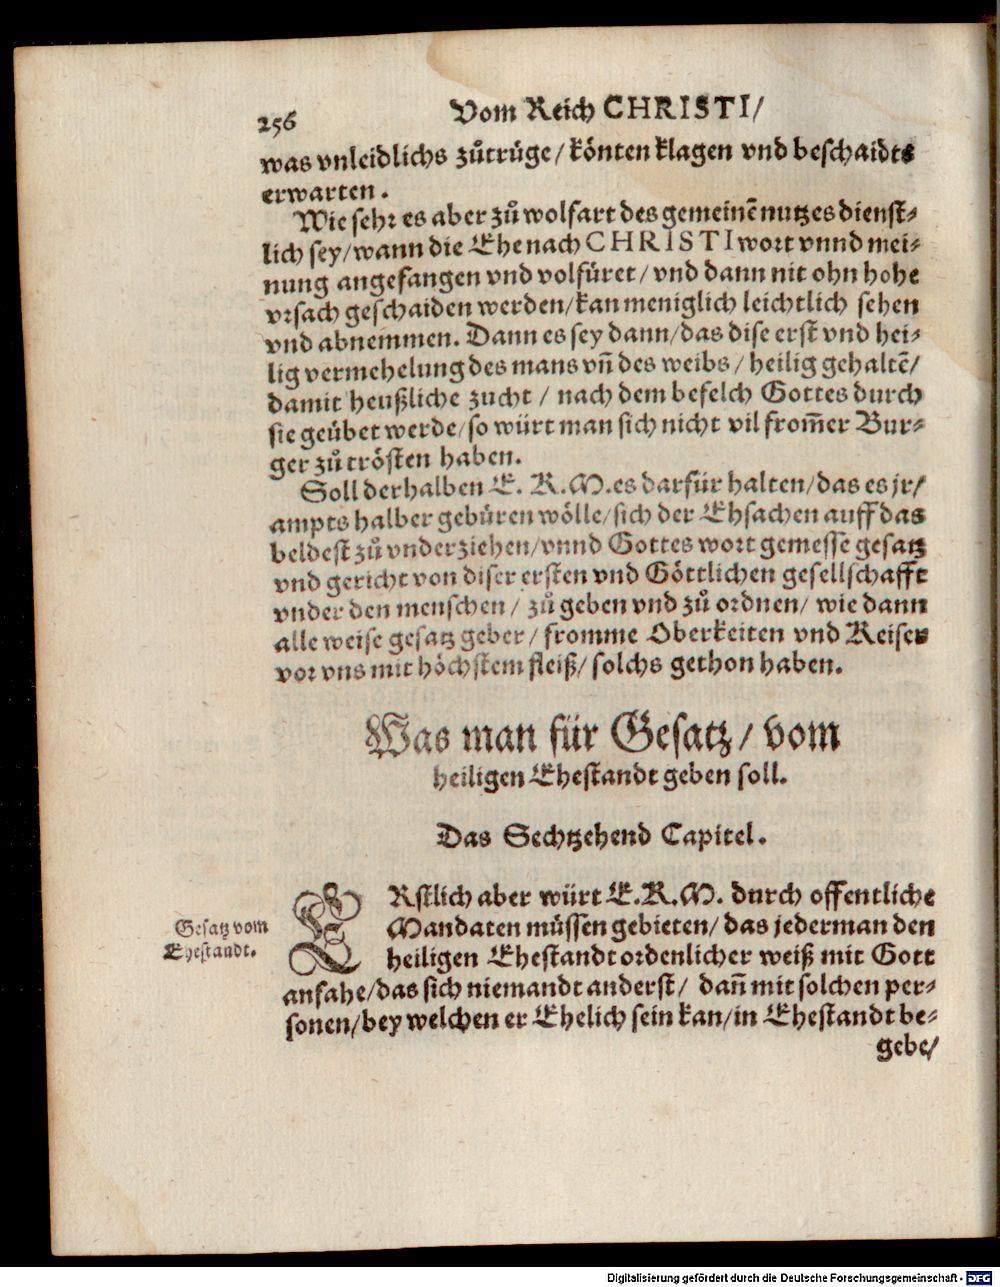 256
Vom Reich CHRISTI/
was vnleidlichs zůtrüge/ könten klagen vnd beschaidts
erwarten.
Wie sehr es aber zů wolfart des gemeinẽ nutzes dienst-
lich sey/ wann die Ehe nach CHRISTI wort vnnd mei-
nung angefangen vnd volfüret/ vnd dann nit ohn hohe
vrsach geschaiden werden/ kan meniglich leichtlich sehen
vnd abnemmen. Dann es sey dann/ das dise erst vnd hei-
lig vermehelung des mans vñ des weibs/ heilig gehaltẽ/
damit heußliche zucht/ nach dem befelch Gottes durch
sie geübet werde/ so würt man sich nicht vil from̃er Bur-
ger zů trösten haben.
Soll derhalben E. K. M. es darfür halten/ das es jr/
ampts halber gebüren wölle/ sich der Ehsachen auff das
beldest zů vnderziehen/ vnnd Gottes wort gemesse gesatz
vnd gericht von diser ersten vnd Göttlichen gesellschafft
vnder den menschen/ zů geben vnd zů ordnen/ wie dann
alle weise gesatz geber/ fromme Oberkeiten vnd Keiser
vor vns mit höchstem fleiß/ solchs gethon haben.
Was man für Gesatz/ vom
heiligen Ehestandt geben soll.
Das Sechtzehend Capitel.
Gesatz vom
Ehestandt.
ERstlich aber würt E. K. M. durch offentliche
Mandaten müssen gebieten/ das jederman den
heiligen Ehestandt ordenlicher weiß mit Gott
anfahe/ das sich niemandt anderst/ dañ mit solchen per-
sonen/ bey welchen er Ehelich sein kan/ in Ehestandt be-
gebe/
Digitalisierung gefördert durch die Deutsche Forschungsgemeinschaft - DFG